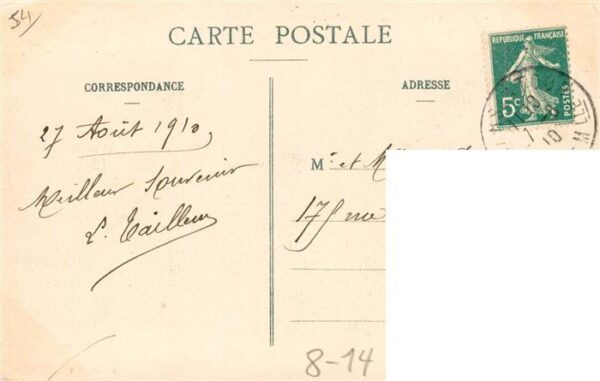 54
CARTE POSTALE
CORRESPONDANCE
ADRESSE
REPUBLIQUE FRANÇAISE
5c
POSTES
10
27 Août 1910
Meilleur Souvenir
L. Tailleur
Mr et M
17 rue
8-14